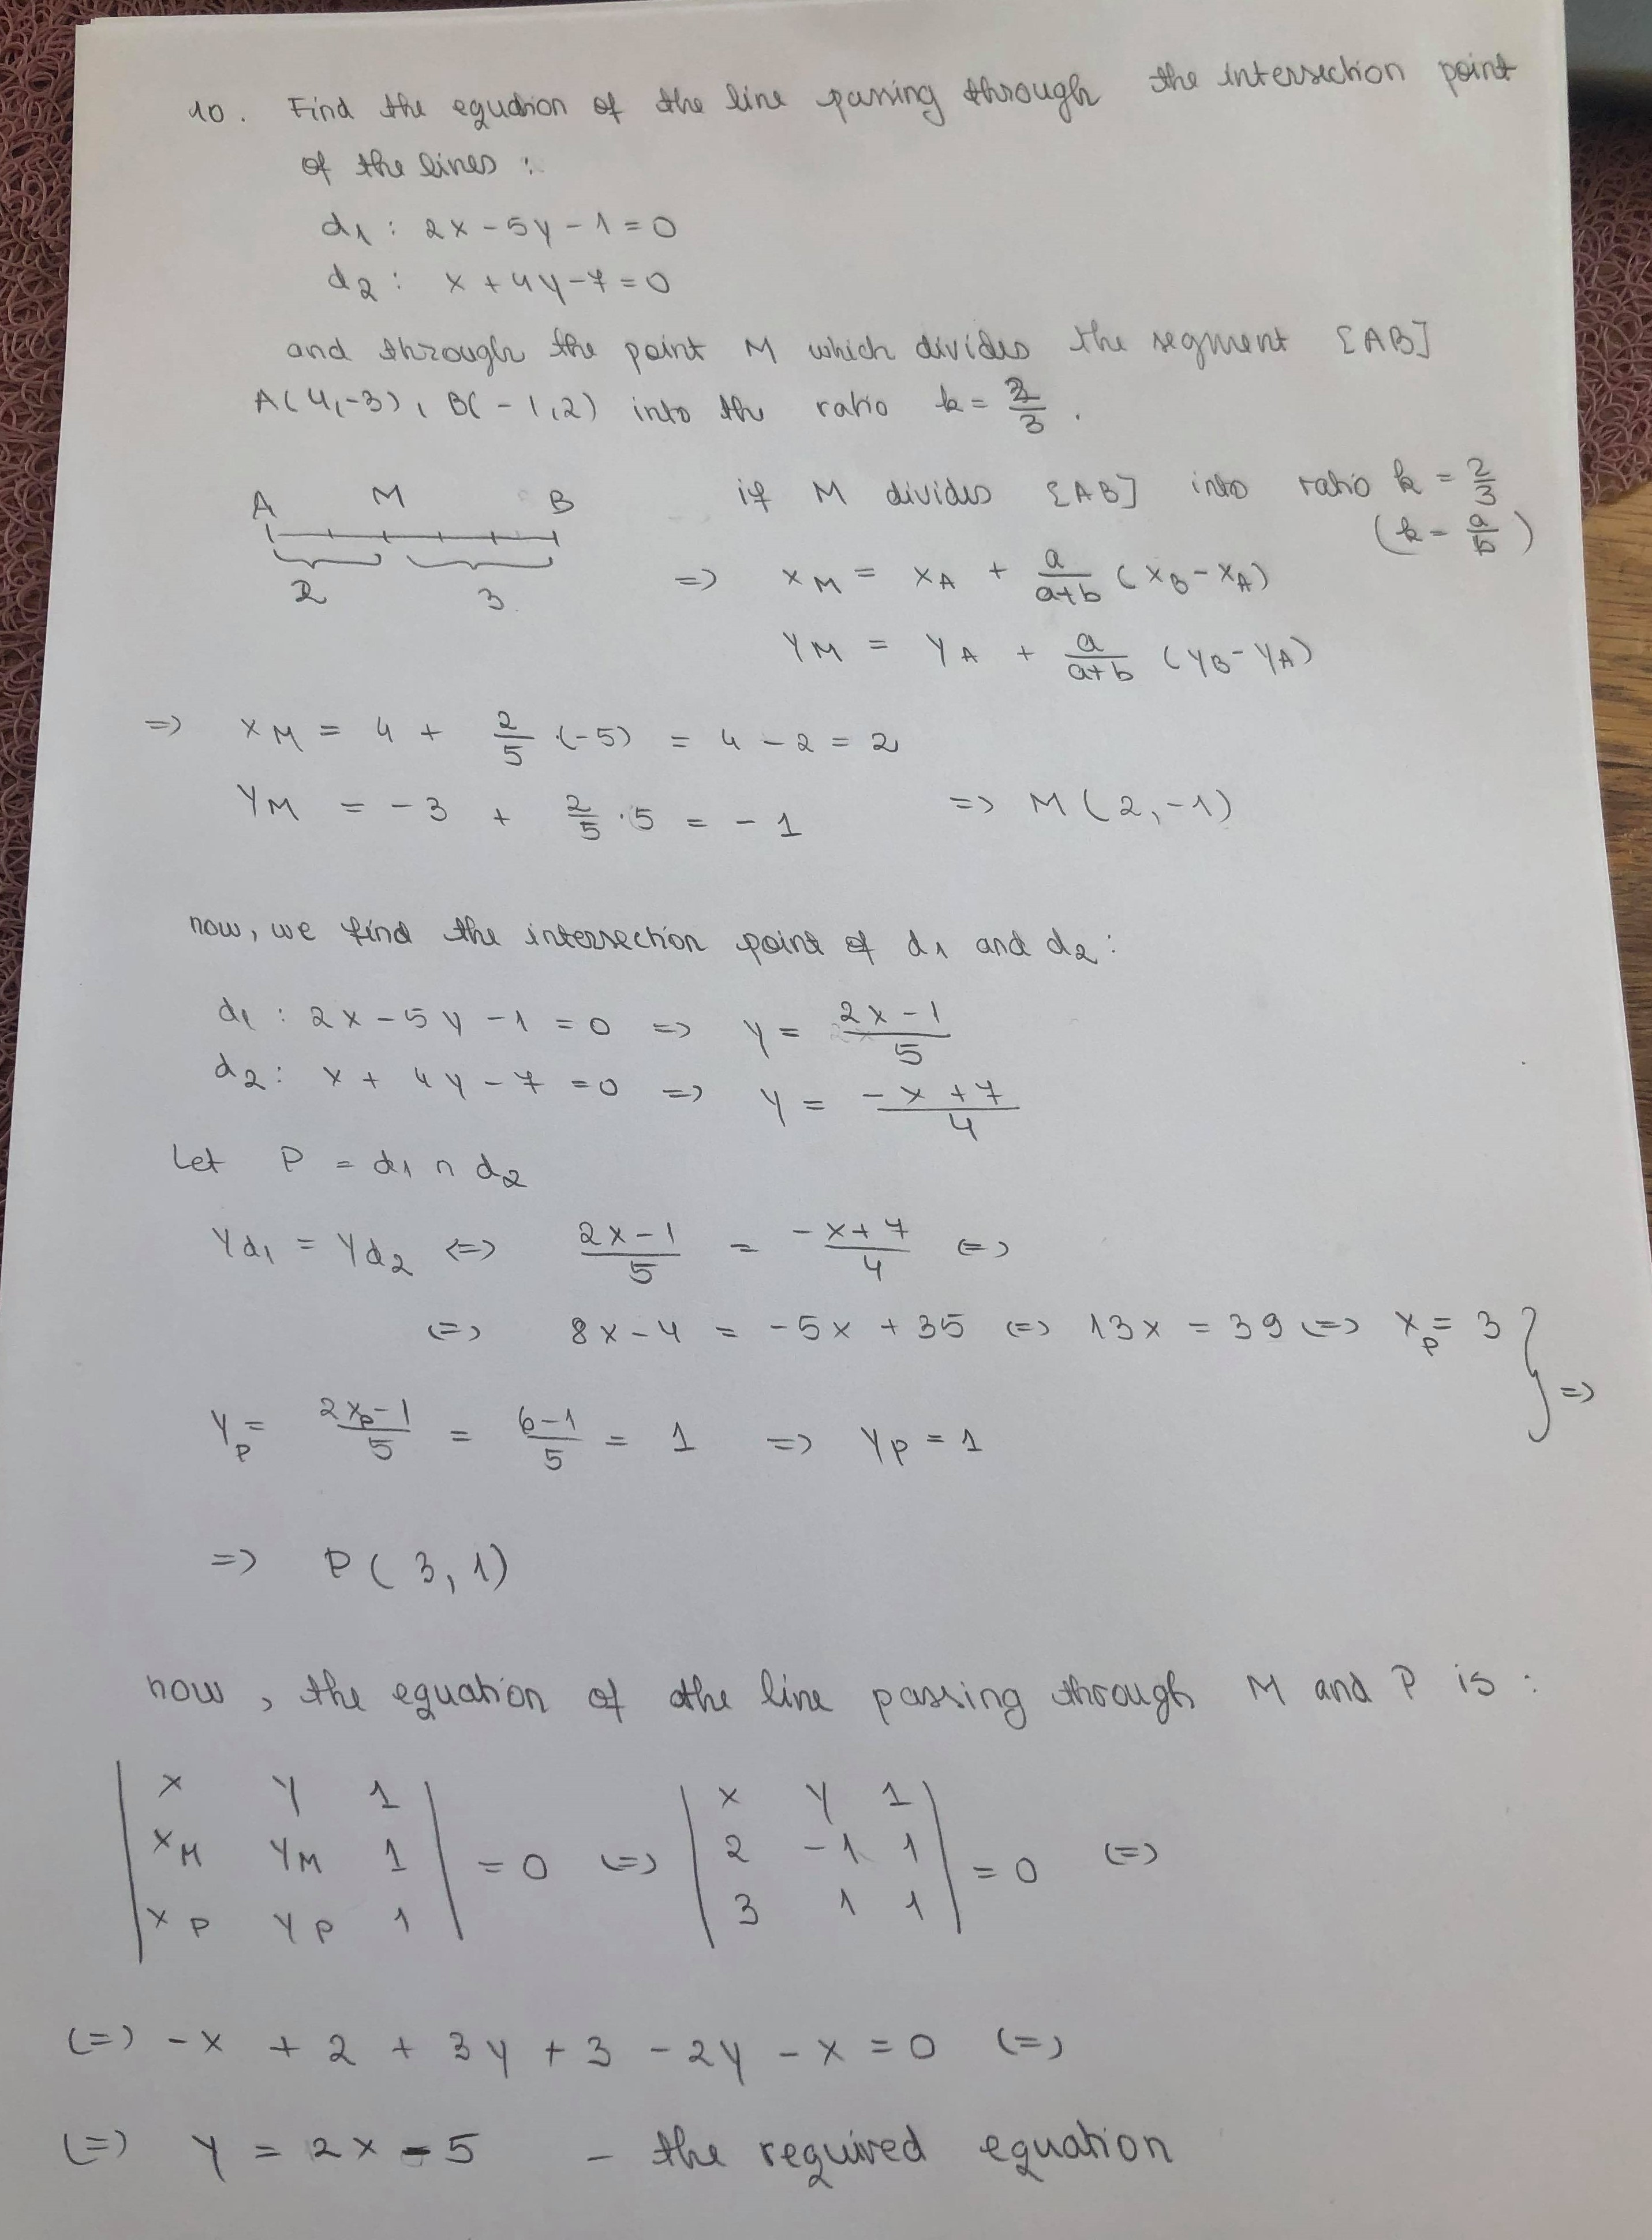 10. Find the equation of the line passing through the intersection point
of the lines :
d1 : 2x - 5y - 1 = 0
d2 : x + 4y - 7 = 0
and through the point M which divides the segment [AB]
A(4,-3), B(-1,2) into the ratio k = 2/3 .
A M B
2 3
if M divides [AB] into ratio k = 2/3
(k = a/b)
=> xM = xA + a/(a+b) (xB - xA)
yM = yA + a/(a+b) (yB - yA)
=> xM = 4 + 2/5 ·(-5) = 4 - 2 = 2
yM = -3 + 2/5 · 5 = -1 => M(2,-1)
now, we find the intersection point of d1 and d2 :
d1 : 2x - 5y - 1 = 0 => y = (2x-1)/5
d2 : x + 4y - 7 = 0 => y = (-x+7)/4
Let P = d1 ∩ d2
yd1 = yd2 <=> (2x-1)/5 = (-x+7)/4 <=>
<=> 8x - 4 = -5x + 35 <=> 13x = 39 <=> xP = 3 } =>
yP = (2xP-1)/5 = (6-1)/5 = 1 => yP = 1
=> P(3,1)
now, the equation of the line passing through M and P is :
| x y 1 | | x y 1 |
| xM yM 1 | = 0 <=> | 2 -1 1 | = 0 <=>
| xP yP 1 | | 3 1 1 |
<=> -x + 2 + 3y + 3 - 2y - x = 0 <=>
<=> y = 2x - 5 - the required equation